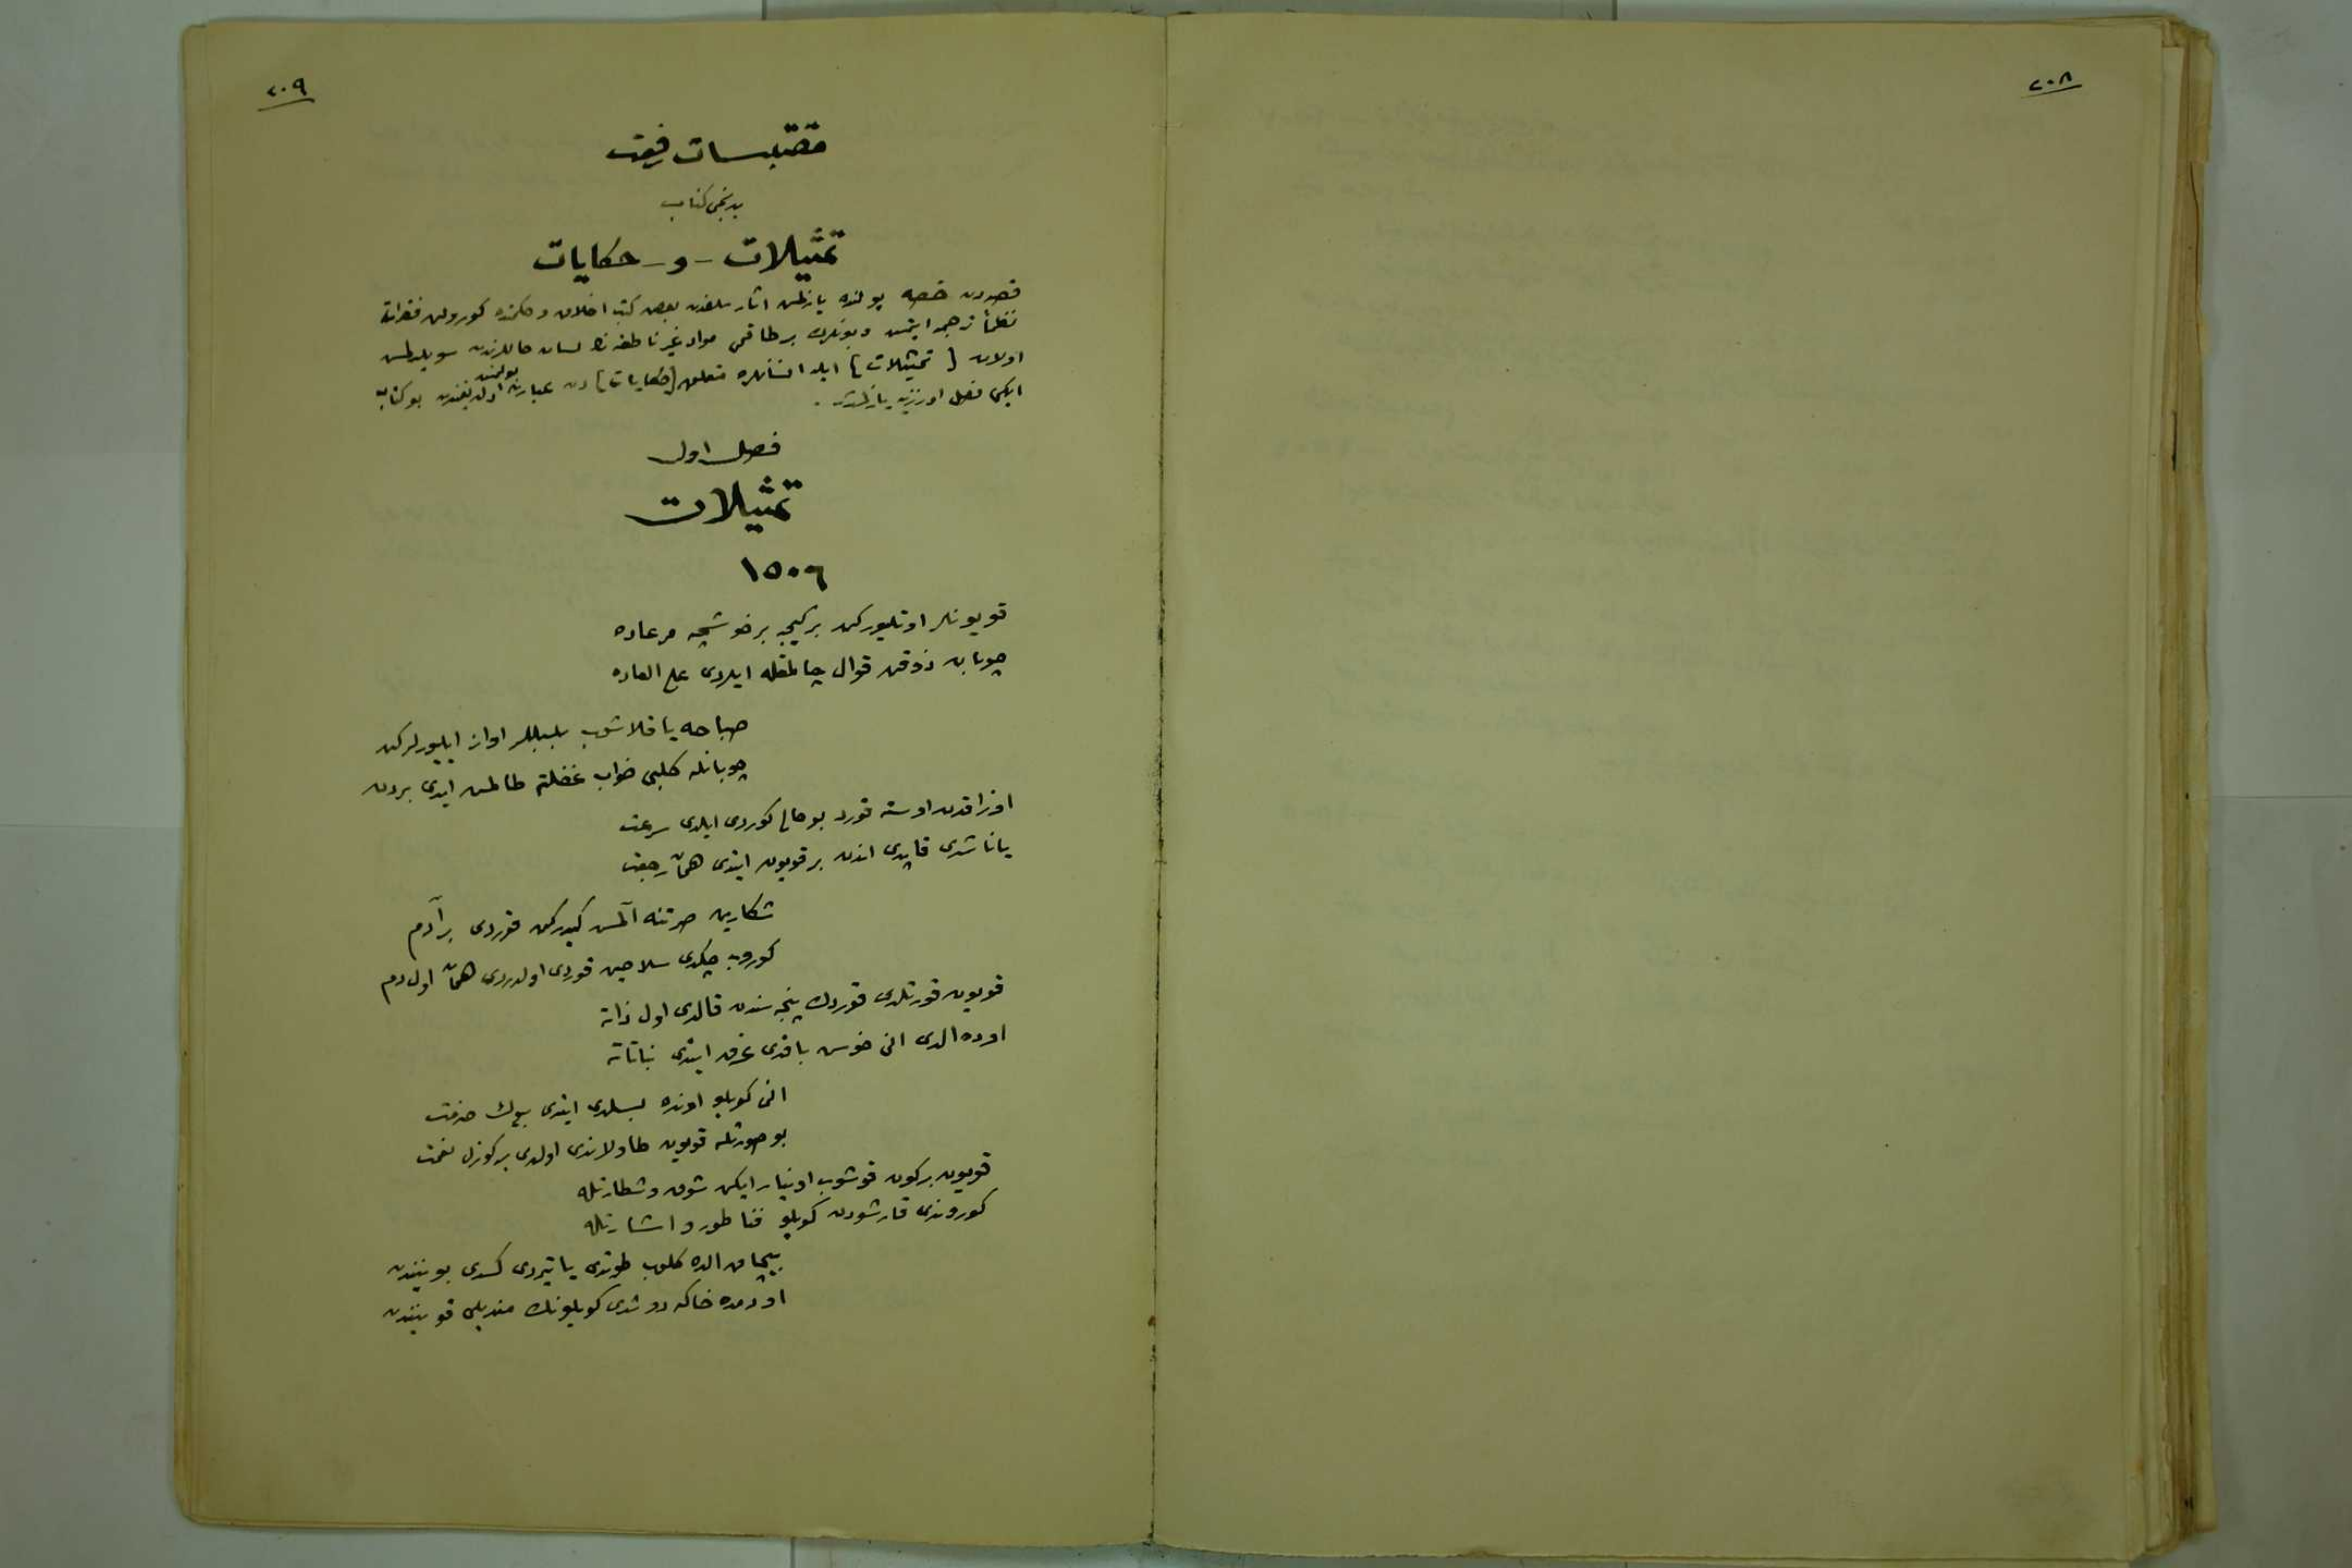 ٢٠٨
٢٠٩
مقتبسات رفعت
یدنجی کتاب
تمثیلات - و - حکایات
قصه‌دن حصه یولنده یازلمش اثار سلفدن بعض کتب اخلاق و حکمتده کورولن فقرات
نظماً ترجمه ایتمش و بونلرك بر طاقمی مواد غیر ناطقه‌نك لسان حاللرندن سویلدلمش
اولان [تمثیلات] ایله انسانلره متعلق [حکایات] دن عبارت بولنمش اولدیغندن بو کتاب
ایکی فصل اوزرینه یازلمشدر.
فصل اول
تمثیلات
١٥٠٦
قویونلر اوتلیورکن بر کیجه بر خوشجه مرعاده
چوبان ذوقن قوال چالمقله ایلردی علی العاده
صباحه یاقلاشوب بلبللر اواز ایلیورلرکن
چوبانله کلبی خواب غفلته طالمش ایدی بردن
اوزاقدن اوسته قورد بو حالی کوردی ایلدی سرعت
یاناشدی قاپدی اندن بر قویون ایتدی همان رجعت
شکارین صرتنه آلمش کیدرکن قوردی بر آدم
کوروب چکدی سلاحین قوردی اولدردی همان اول دم
قویون قورتلدی قوردك پنجه‌سندن قالدی اول ذاته
اوده الدی انی خوش باقدی غرق ایتدی نباتاته
انی کویلو اونده بسلدی ایتدی بیوك خدمت
بو صورتله قویون طاولاندی اولدی بر کوزل نعمت
قویون بر کون قوشوب اوینار ایکن شوق و شطارتله
کوروندی قارشودن کویلو فنا طور و اشارتله
بیچاق الده کلوب طوتدی یاتیردی کسدی بوینندن
او دمده خاکه دوشدی کویلونك مندیلی قوینندن